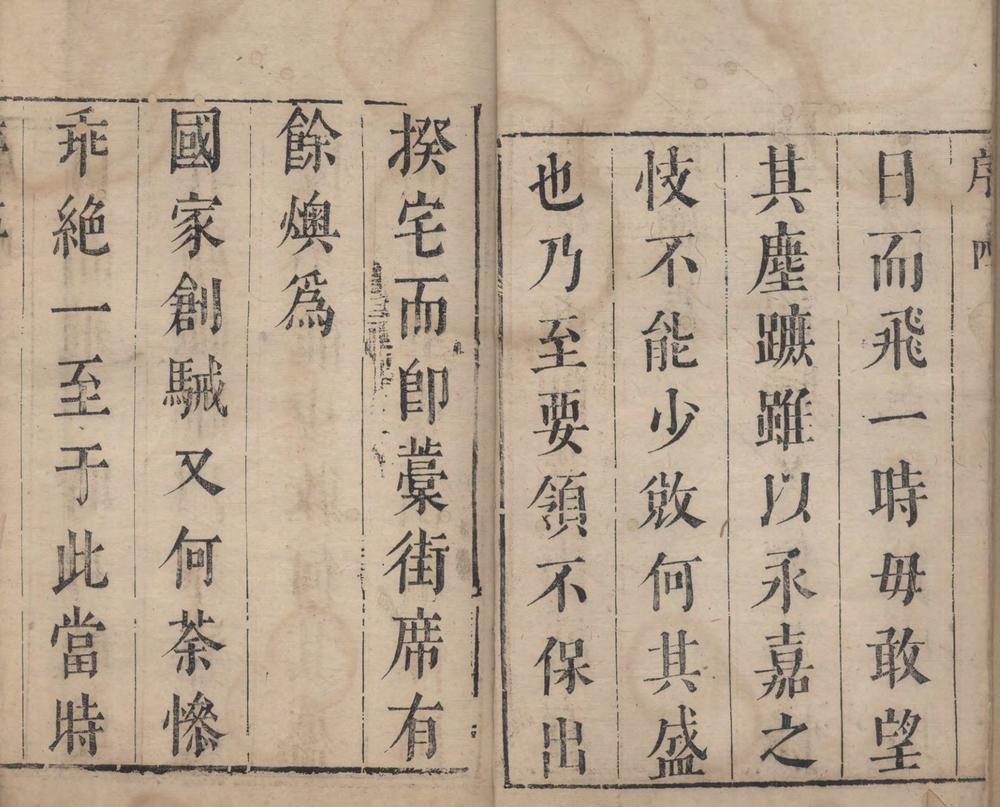 序 四
日而飛一時毋敢望
其塵蹠雖以永嘉之
忮不能少敚何其盛
也乃至要領不保出
揆宅而卽藁街席有
餘燠爲
國家創駴又何荼慘
乖絕一至于此當時